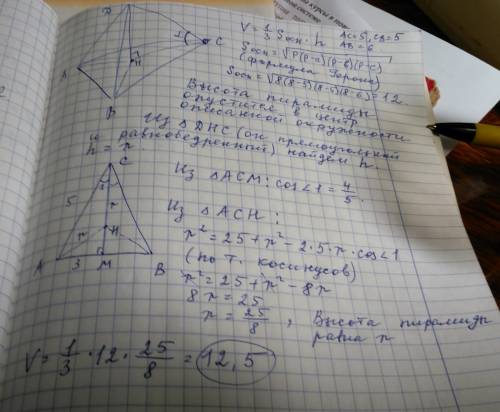 D
A
B
C
H
V = 1/3 Sосн · h
AC=5, CB=5
AB=6
Sосн = √p(p-a)(p-b)(p-c)
(формула Герона)
Sосн = √8(8-5)(8-5)(8-6) = 12.
Высота пирамиды
опустится в центр
описанной окружности.
Из △DHC (он прямоугольный
и равнобедренный) найдём h.
h = r.
C
1
5
r
r
H
A
3
M
B
Из △ACM: cos∠1 = 4/5.
Из △ACH:
r² = 25 + r² - 2·5·r·cos∠1
(по т. косинусов)
r² = 25 + r² - 8r
8r = 25
r = 25/8, Высота пирамиды
равна r
V = 1/3 · 12 · 25/8 = 12,5